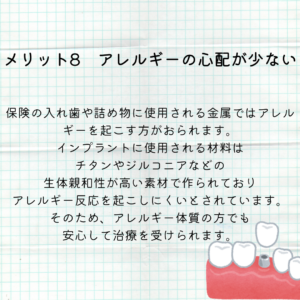 メリット8　アレルギーの心配が少ない
保険の入れ歯や詰め物に使用される金属ではアレル
ギーを起こす方がおられます。
インプラントに使用される材料は
チタンやジルコニアなどの
生体親和性が高い素材で作られており
アレルギー反応を起こしにくいとされています。
そのため、アレルギー体質の方でも
安心して治療を受けられます。